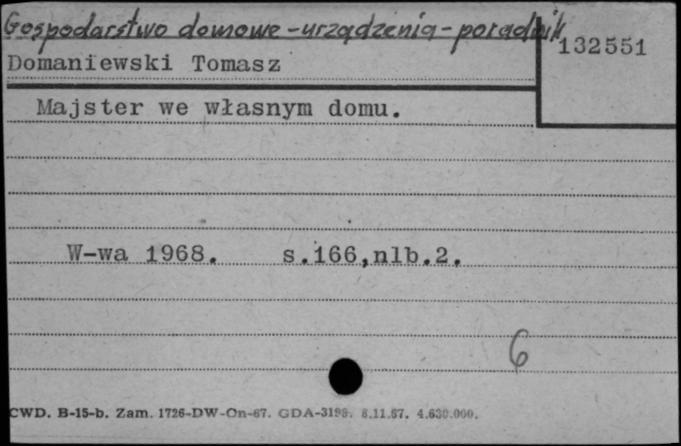 Gospodarstwo domowe - urządzenia - poradnik
132551
Domaniewski Tomasz
Majster we własnym domu.
W-wa 1968. s.166,nlb.2.
6
CWD. B-15-b. Zam. 1726-DW-On-67. GDA-3198. 8.11.67. 4.630.000.